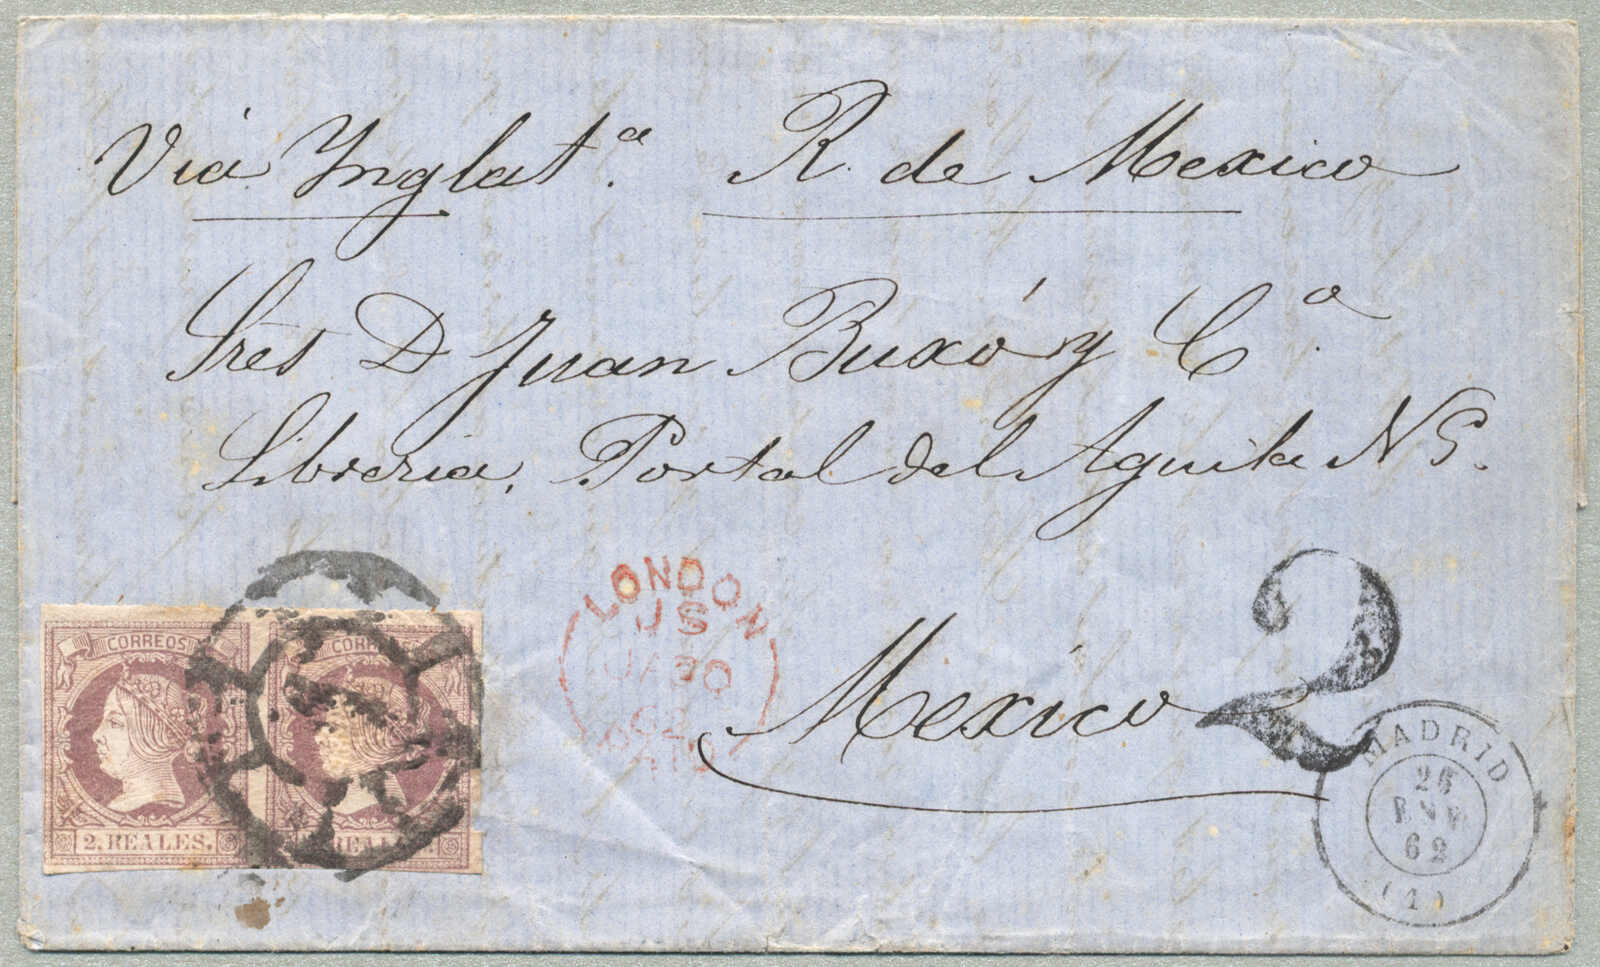 Viá Ynglat.ª R. de Mexico
Sres D Juan Buxó y C.ª
Libreria, Portal del Aguila N 5.
Mexico
2
LONDON
JS
JA 30
62
PAID
MADRID
26
ENE
62
(1)
CORREOS
2. REALES.
CORREOS
REALES.